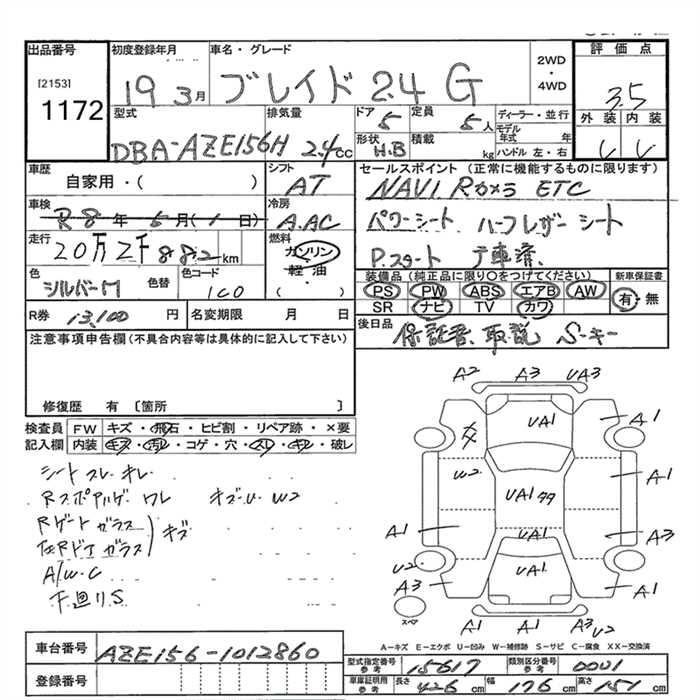 出品番号 初度登録年月 車名・グレード 評価点
[2153] 1172
19年3月 ブレイド 2.4 G 2WD・4WD 3.5
型式 排気量 ドア 定員 ディーラー・並行 外装 内装
DBA-AZE156H 2.4cc 5 5人 モデル年式 年
形状 H.B 積載 kg ハンドル 左・右
車歴 シフト セールスポイント (正常に機能するものに限ります)
自家用・( ) AT NAVI Rカメラ ETC
車検 冷房
R8年5月(1日) A.AC パワーシート ハーフレザーシート
走行 燃料
20万2千882km ガソリン・軽油( ) P.スタート 下車済
色 色替 色コード 装備品(純正品に限り○をつけてください) 新車保証書
シルバーM 1C0 PS PW ABS エアB AW 有・無
SR ナビ TV カワ
R券 13,100円 名変期限 月 日 後日品
保証書、取説 S-キー
注意事項申告欄(不具合内容等は具体的に記入して下さい)
修復歴 有 〔箇所 〕
検査員記入欄 FW キズ・飛石・ヒビ割・リペア跡・×要
内装 キズ・汚レ・コゲ・穴・スレ・キレ・破レ
シートスレ・キレ
Rスポ アルゲ ワレ キズ・U W2
Rゲートガラス
左Rドアガラス キズ
A/W.C
下廻りS
A2 A3 UA3
UA1 A1
W2 A1
UA1
A1 UA1 A3
U2 A3 UA1 A1
スペア
A1 A3 U2
A-キズ E-エクボ U-凹み W-補修跡 S-サビ C-腐食 XX-交換済
車台番号 AZE156-1012860
登録番号
型式指定番号 参考 15617 類別区分番号 参考 0001
車庫証明用 参考 長さ 426cm 幅 176cm 高さ 151cm